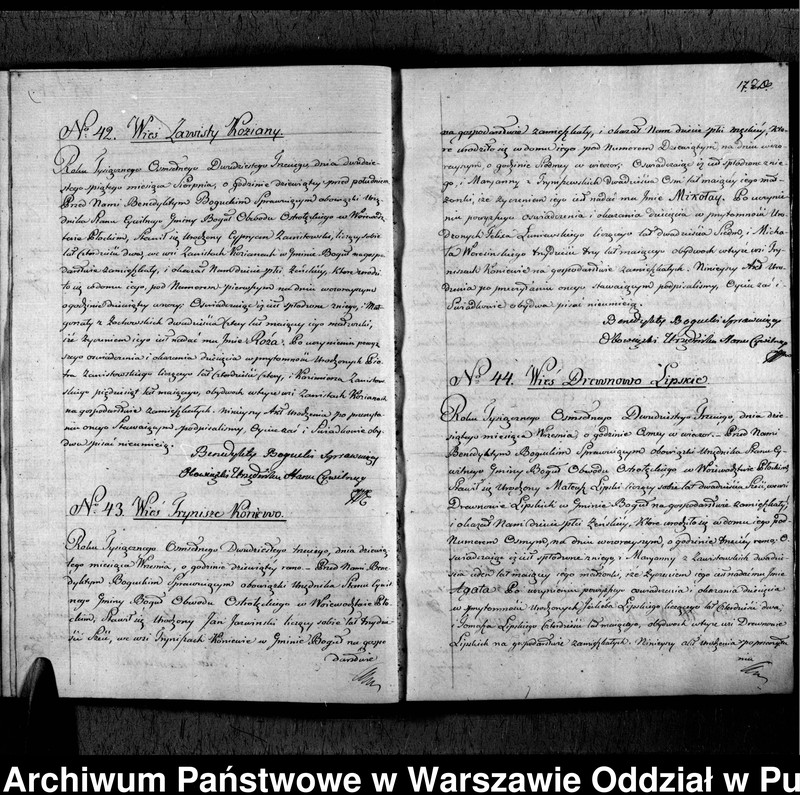 No. 42. Wieś Zawisty Koziany.
Roku Tysiącznego Osmsetnego Dwudziestego Trzeciego, dnia dwudzie-
stego piątego miesiąca Sierpnia, o godzinie dziewiątey przed południem
Przed Nami Benedyktym Boguckim Sprawuiącym obowiązki Urzę-
dnika Stanu Cywilnego Gminy Boguł Obwodu Ostrołęckiego w Woiewódz-
twie Płockim, Stawił się Urodzony Cypryan Zawistowski, liczący sobie
lat Czterdzieści dwa, we wsi Zawistach Kozianach w Gminie Boguł na gospo-
darstwie zamieszkały, i okazał Nam dziecie płci żeńskiey, które urodzi-
ło się w domu iego pod Numerem Pierwszym na dniu wczorayszym
o godzinie dziewiątey w nocy. Oświadczaiąc iż iest spłodzone z niego, i Mał-
gorzaty z Żochowskich dwadzieścia Cztery lat maiącey iego małżonki,
iż życzeniem iego iest nadać mu Jmie Roża. Po uczynieniu powyż-
szego oświadczenia i okazania dziecięcia w przytomności Urodzonych Pio-
tra Zawistowskiego liczącego lat Czterdzieści Cztery, i Kazimierza Zawistow-
skiego pięćdziesiąt lat maiącego, obydwóch w teyże wsi Zawistach Kozianach
na gospodarstwie zamieszkałych. Ninieyszy Akt Urodzenia po przeczyta-
niu onego Stawaiącym podpisaliśmy, Oyciec zaś i Świadkowie oby-
dwa pisać nieumieią.
Benedykty Bogucki Sprawuiący
Obowiązki Urzędnika Stanu Cywilnego
No. 43. Wieś Trynisze Koniewo.
Roku Tysiącznego Osmsetnego Dwudziestego trzeciego, dnia dziewią-
tego miesiąca Września, o godzinie dziewiątey rano. Przed Nami Bene-
dyktym Boguckim Sprawuiącym obowiązki Urzędnika Stanu Cywil-
nego Gminy Boguł Obwodu Ostrołęckiego w Woiewództwie Pło-
ckim, Stawił się Urodzony Jan Jarwiński liczący sobie lat trzydzie-
ści Sześć, we wsi Tryniszach Koniewie w Gminie Boguł na gospo
darstwie
na gospodarstwie zamieszkały, i okazał Nam dziecie płci męskiey, któ-
re urodziło się w domu iego pod Numerem Dziewiątym, na dniu wczo-
rayszym o godzinie Siódmey w wieczor. Oświadczaiąc iż iest spłodzone z nie-
go, i Maryanny z Tryniszewskich dwadzieścia Osm lat maiącey iego mał-
żonki, iże życzeniem iego iest nadać mu Jmie Mikołay. Po uczynie-
niu powyższego oświadczenia i okazania dziecięcia w przytomności Uro-
dzonych Felixa Łuniewskiego liczącego lat dwadzieścia Siedm, i Micha-
ła Worocińskiego trzydzieści trzy lat maiącego obydwóch w teyże wsi Try-
niszach Koniewie na gospodarstwie zamieszkałych. Ninieyszy Akt Uro-
dzenia po przeczytaniu onego stawaiącym podpisaliśmy, Oyciec zaś i
Świadkowie obydwa pisać nieumieią.
Benedykty Bogucki Sprawuiący
Obowiązki Urzędnika Stanu Cywilnego
No. 44. Wieś Drewnowo Lipskie
Roku Tysiącznego Osmsetnego Dwudziestego Trzeciego, dnia dzie-
siątego miesiąca Września o godzinie Osmey w wieczor. Przed Nami
Benedyktym Boguckim Sprawuiącym obowiązki Urzędnika Stanu Cy-
wilnego Gminy Boguł Obwodu Ostrołęckiego w Woiewództwie Płockim
Stawił się Urodzony Mateusz Lipski liczący sobie lat dwadzieścia Sześć, we wsi
Drewnowie Lipskich w Gminie Boguł na gospodarstwie zamieszkały,
i okazał Nam dziecie płci Żeńskiey, które urodziło się w domu iego pod
Numerem Osmym, na dniu wczorayszym, o godzinie trzeciey rano. O-
świadczaiąc iż iest spłodzone z niego, i Maryanny z Zawistowskich dwadzie-
ścia ieden lat maiącey iego małżonki, iże życzeniem iego iest nadać mu Jmie
Agata. Po uczynieniu powyższego oświadczenia i okazania dziecięcia
w przytomności Urodzonych Jakóba Lipskiego liczącego lat Czterdzieści dwa,
Tomasza Lipskiego Czterdzieści lat maiącego, obydwóch w teyże wsi Drewnowie
Lipskich na gospodarstwie zamieszkałych. Ninieyszy akt Urodzenia po przeczyta-
niu
Archiwum Państwowe w Warszawie Oddział w Pu